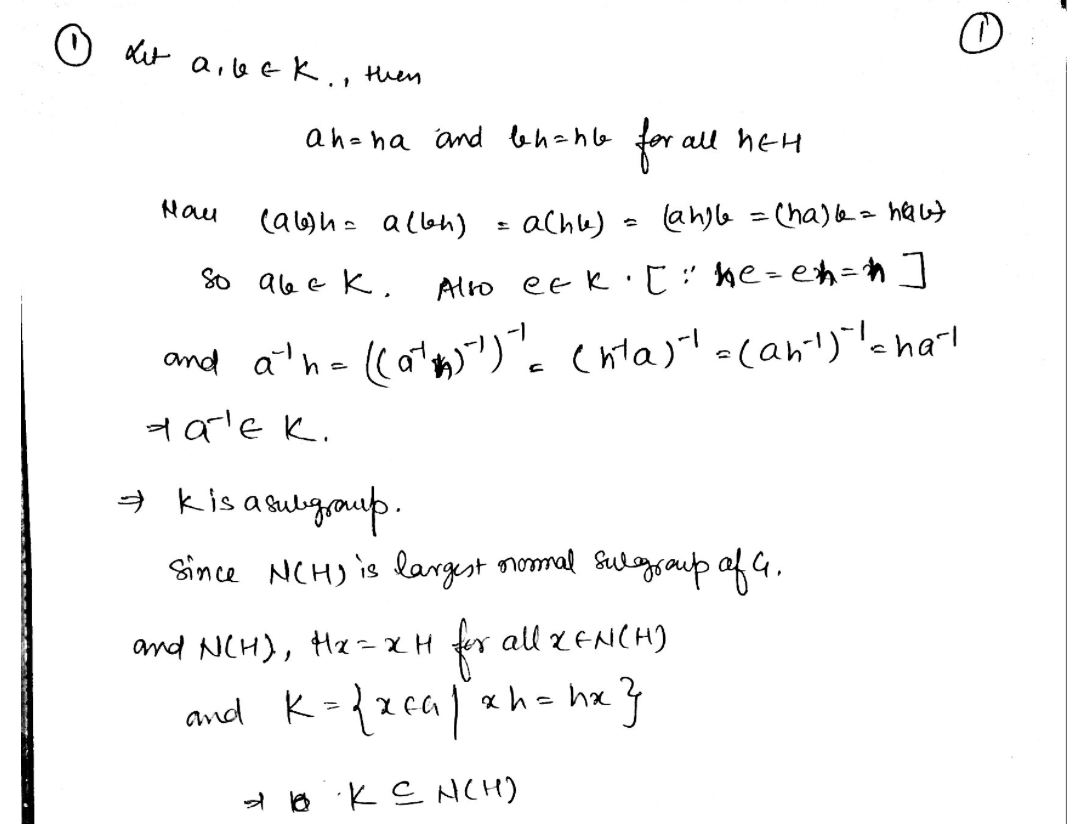 ① Let a, b ∈ K., then ①
ah = ha and bh = hb for all h ∈ H
Now (ab)h = a(bh) = a(hb) = (ah)b = (ha)b = h(ab)
So ab ∈ K. Also e ∈ K. [∵ he = eh = h]
and a⁻¹h = ((a⁻¹h)⁻¹)⁻¹ = (h⁻¹a)⁻¹ = (ah⁻¹)⁻¹ = ha⁻¹
⇒ a⁻¹ ∈ K.
⇒ K is a subgroup.
Since N(H) is largest normal subgroup of G.
and N(H), Hx = xH for all x ∈ N(H)
and K = {x ∈ G | xh = hx}
⇒ K ⊆ N(H)